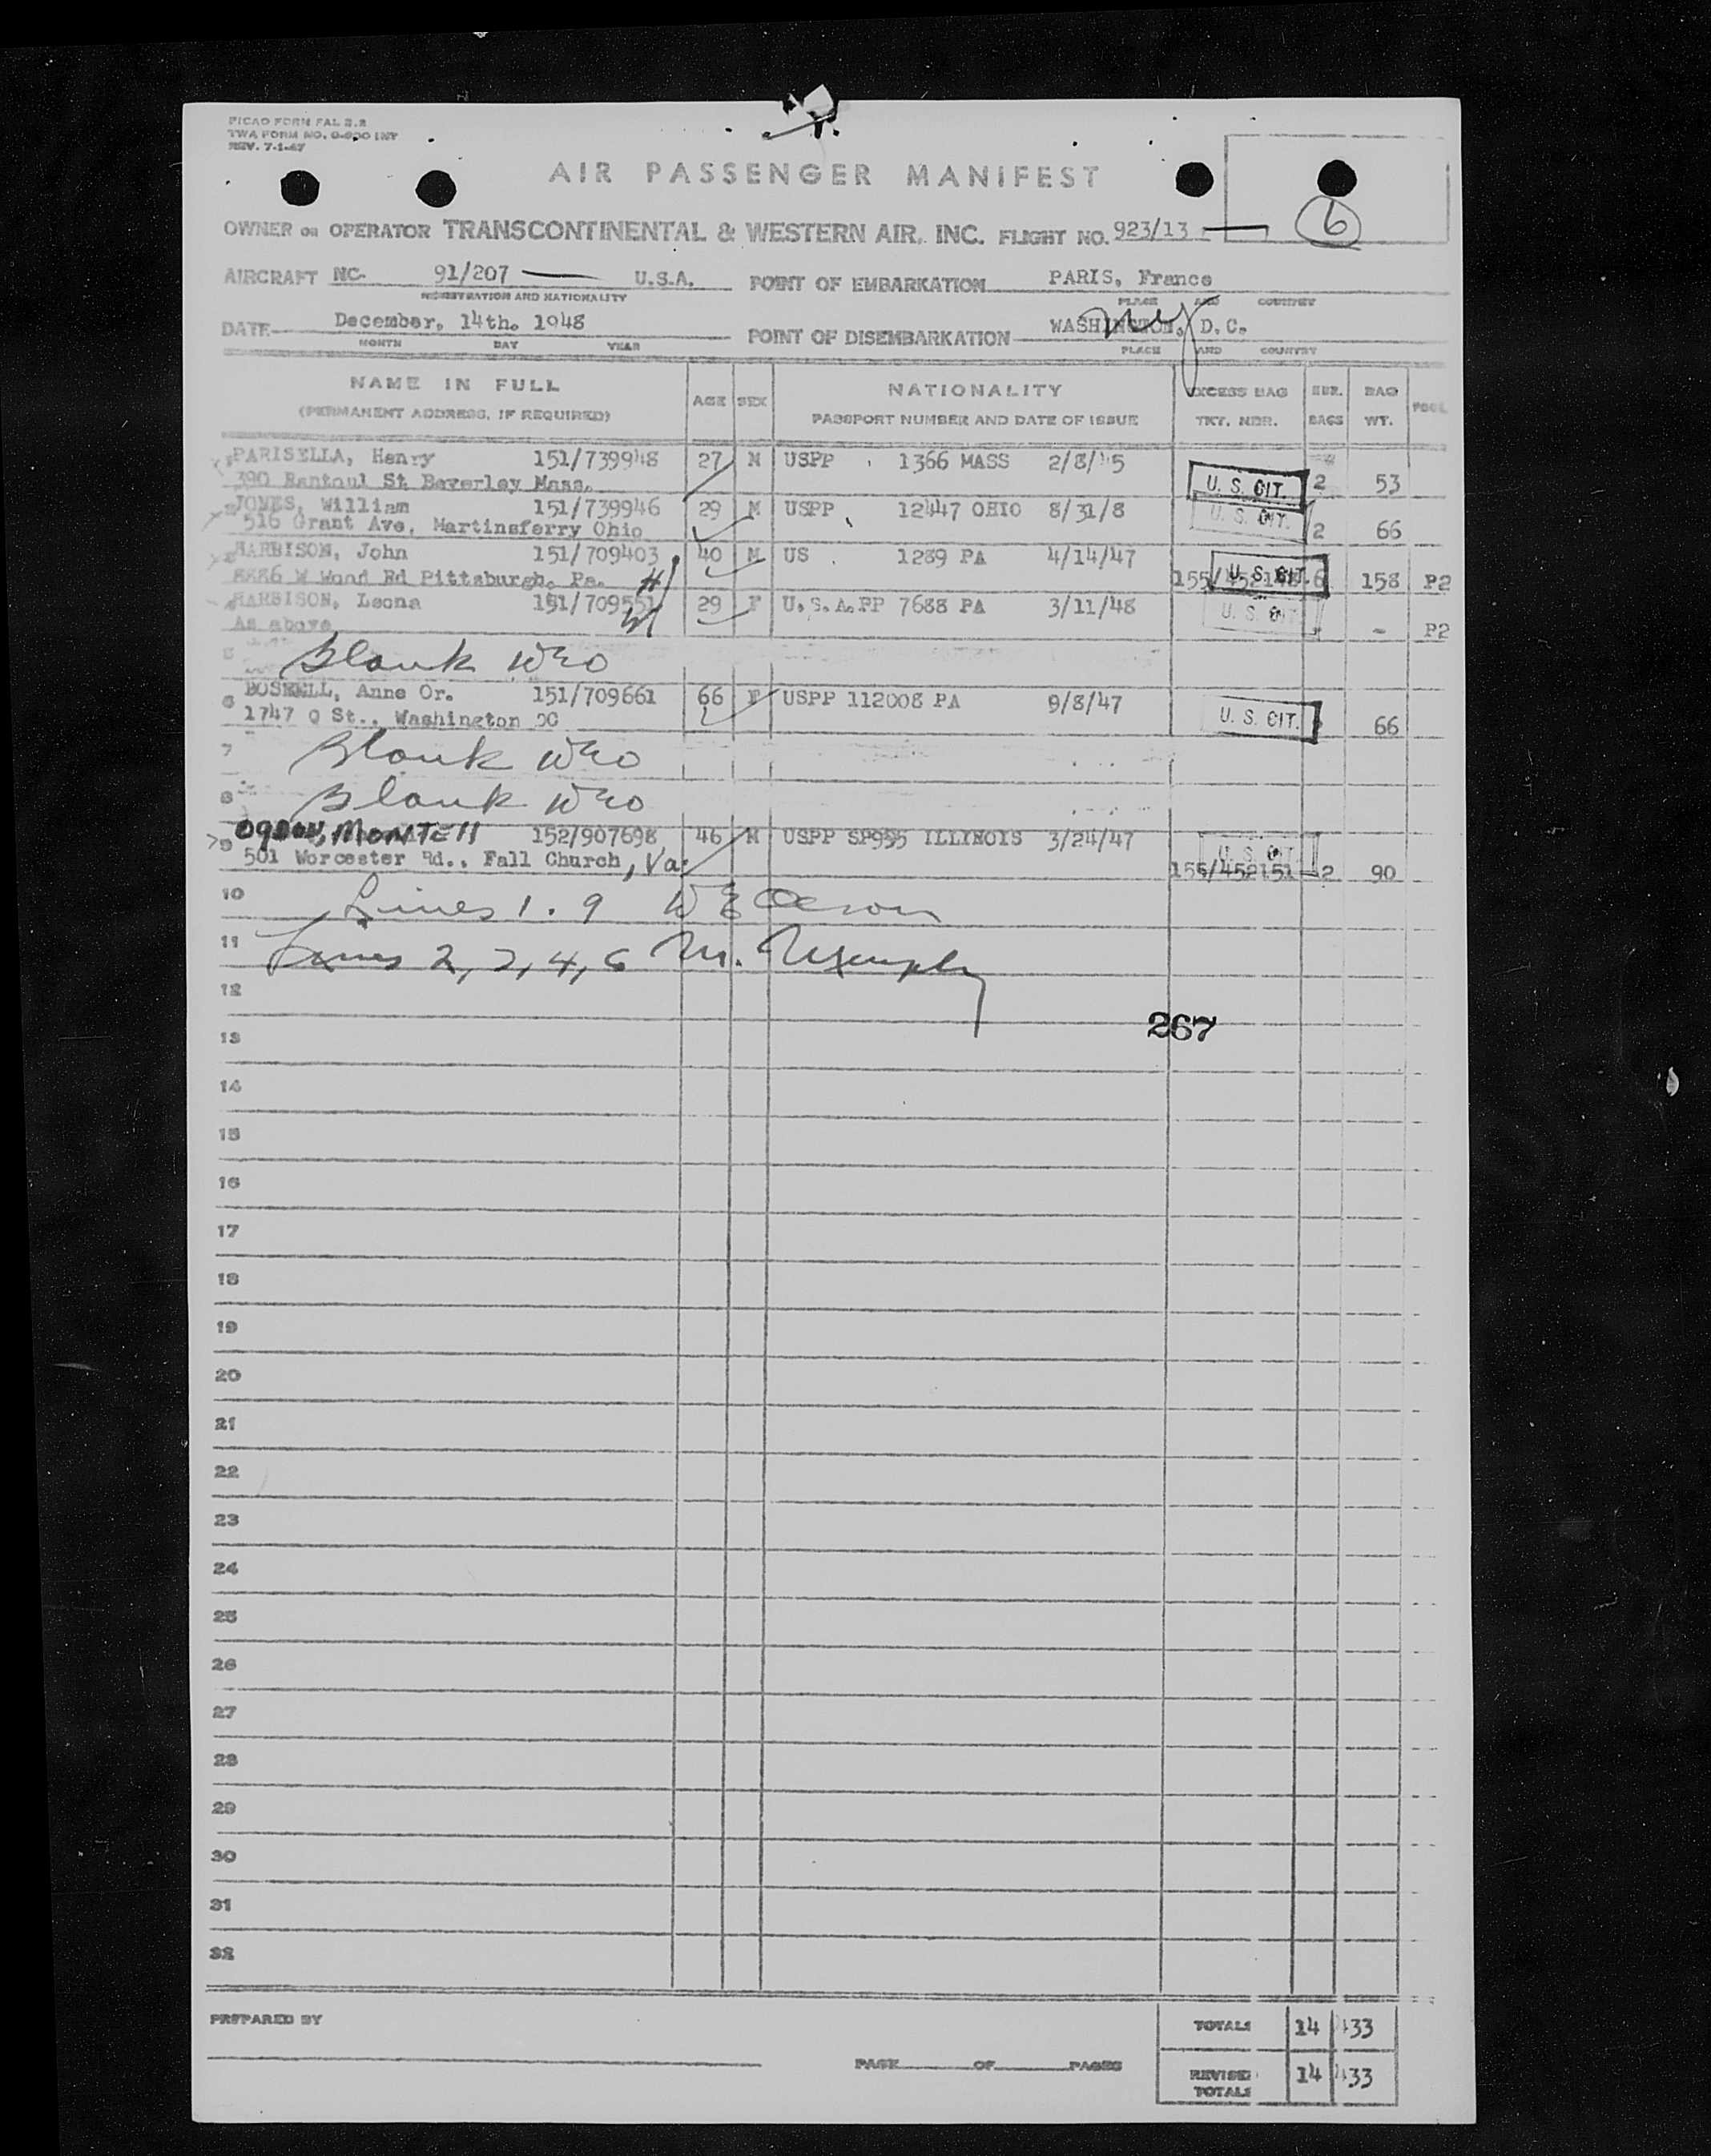 PICAO FORM FAL 2.2
TWA FORM NO. O-600 INT
REV. 7-1-47
AIR PASSENGER MANIFEST
6
OWNER OR OPERATOR TRANSCONTINENTAL & WESTERN AIR, INC. FLIGHT NO. 923/13
AIRCRAFT NC- 91/207 U.S.A. POINT OF EMBARKATION PARIS, France
REGISTRATION AND NATIONALITY PLACE AND COUNTRY
DATE December, 14th. 1948 POINT OF DISEMBARKATION WASHINGTON, D.C. NY
MONTH DAY YEAR PLACE AND COUNTRY
NAME IN FULL AGE SEX NATIONALITY EXCESS BAG NBR. BAG POOL
(PERMANENT ADDRESS, IF REQUIRED) PASSPORT NUMBER AND DATE OF ISSUE TKT. NBR. BAGS WT.
PARISELLA, Henry 151/739948 27 M USPP 1366 MASS 2/8/45 U. S. CIT. 2 53
390 Rantoul St Beverley Mass.
JONES, William 151/739946 29 M USPP 12447 OHIO 8/31/8 U. S. CIT. 2 66
516 Grant Ave, Martinsferry Ohio
HARBISON, John 151/709403 40 M US 1289 PA 4/14/47 U. S. CIT. 6 158 P2
W Wood Rd Pittsburgh, Pa. H
HARBISON, Leona 151/709551 29 F U.S.A.PP 7688 PA 3/11/48 U. S. CIT. - P2
As above W
5 Blank WEO
6 BOSWELL, Anne Or. 151/709661 66 F USPP 112008 PA 9/8/47 U. S. CIT. 66
1747 Q St., Washington DC
7 Blank WEO
8 Blank WEO
9 OGDEN, MONTELL 152/907698 46 M USPP SP955 ILLINOIS 3/24/47 U. S. CIT.
501 Worcester Rd., Fall Church, Va. 155/452151 2 90
10 Lines 1. 9 WE Olson
11 Lines 2, 3, 4, 6 M.
12
267
13
14
15
16
17
18
19
20
21
22
23
24
25
26
27
28
29
30
31
32
PREPARED BY TOTALS 14 433
PAGE OF PAGES REVISED TOTALS 14 433